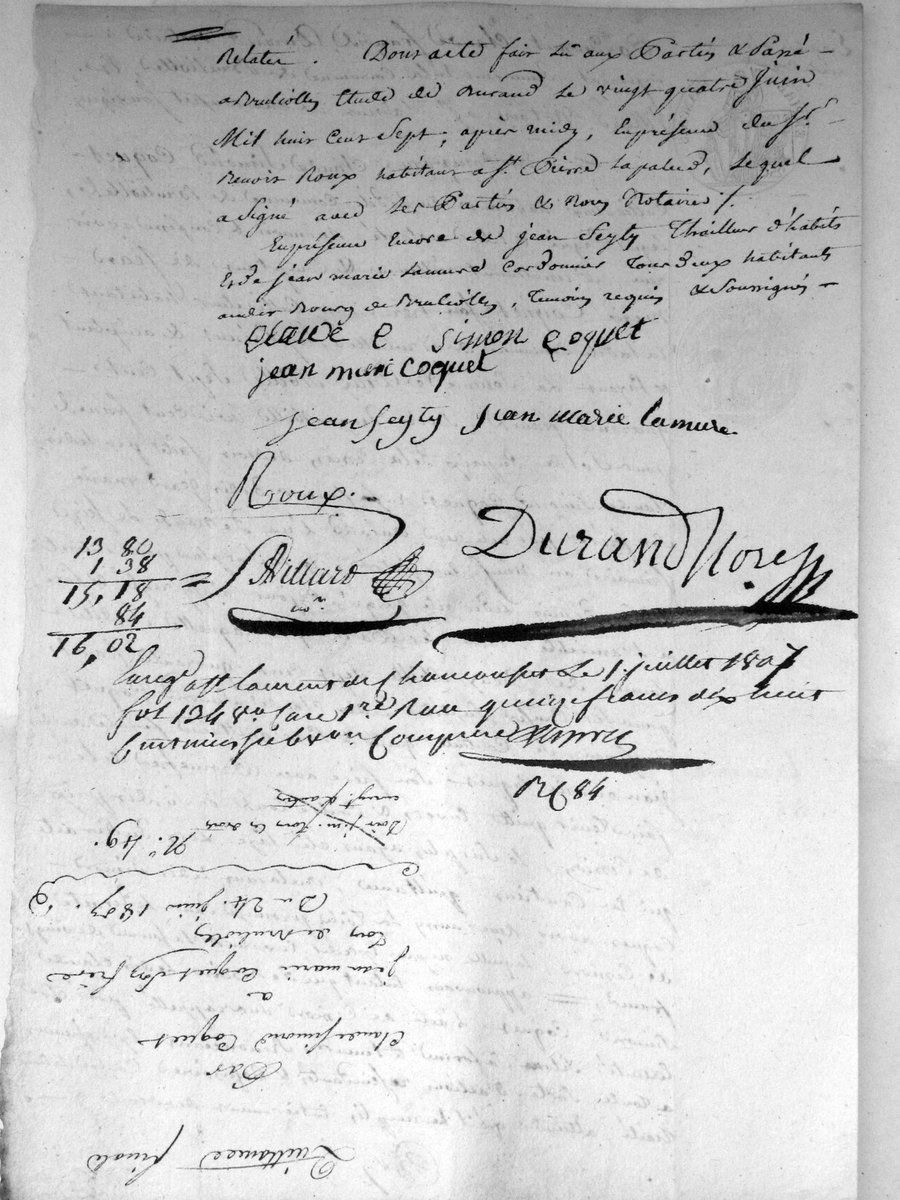 Relaté. Dont acte fait lû aux Parties & Passé
a Brulliolles Etude de Durand Le vingt quatre Juin
Mil huit cent Sept ; après midy, En présence du Sr.
Benoit Roux habitant a St. Pierre Lapalud, Lequel
a Signé avec Les Parties & Nous Notaires /.
En présence Encore de jean Seyty Thailleur d'habits
Et de jean marie Lamure Cordonnier Tous deux habitants
audit Bourg de Brulliolles, Temoins requis & Soussignés
Claude Simon Coquet
jean meri Coquet
jean Seyty jean marie lamure
Rroux.
13 80
1 38
15, 18
84
16, 02
DURAND Nore
a St laurent de Chamousset Le 1. juillet 1807
fol 134 Vo Case 1re Reçu quinze francs dix huit
Centimes Compris
R 84
Quittance finale
Par
Claude Simond Coquet
a
jean marie Coquet Son frère
de Brulliolles
Du 24. juin 1807.
No. 49.